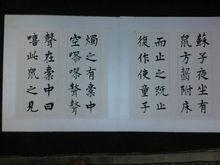 蘇子夜坐有
鼠方齧拊床
而止之既止
復作使童子
燭之有橐中
空嘐嘐聱聱
聲在橐中曰
嘻此鼠之見